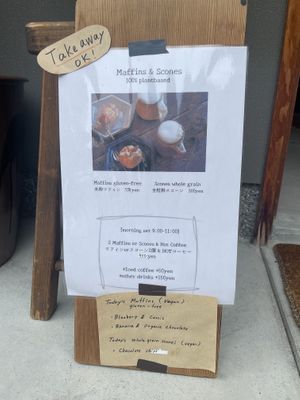 Takeaway
OK!
Maffins & Scones
100% plantbased
Maffins gluten-free
Scones whole grain
米粉マフィン
全粒粉スコーン
[morning set 9:00-11:00]
2 Maffins or Scones & Hot Coffee
マフィンorスコーン2個 & HOTコーヒー
+Iced coffee +50yen
+other drinks +150yen
Today's Muffins (vegan)
gluten-free
・Blueberry & Cassis
・Banana & Organic chocolate
Today's whole grain scones (vegan)
・Chocolate